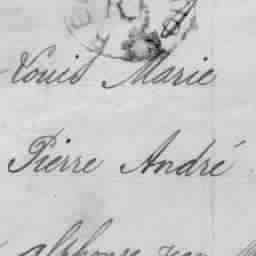 Louis Marie
Pierre André
Alphonse Jean